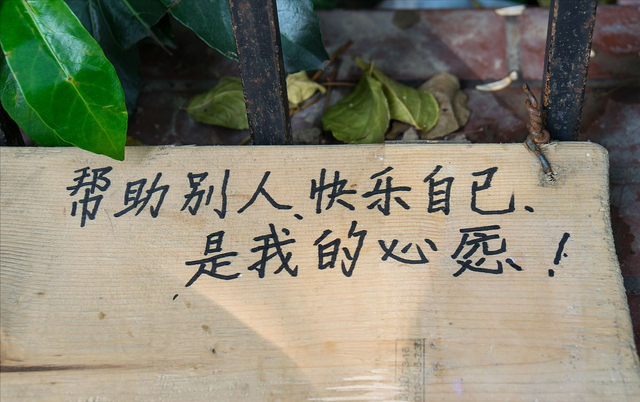 帮助别人、快乐自己、
是我的心愿！